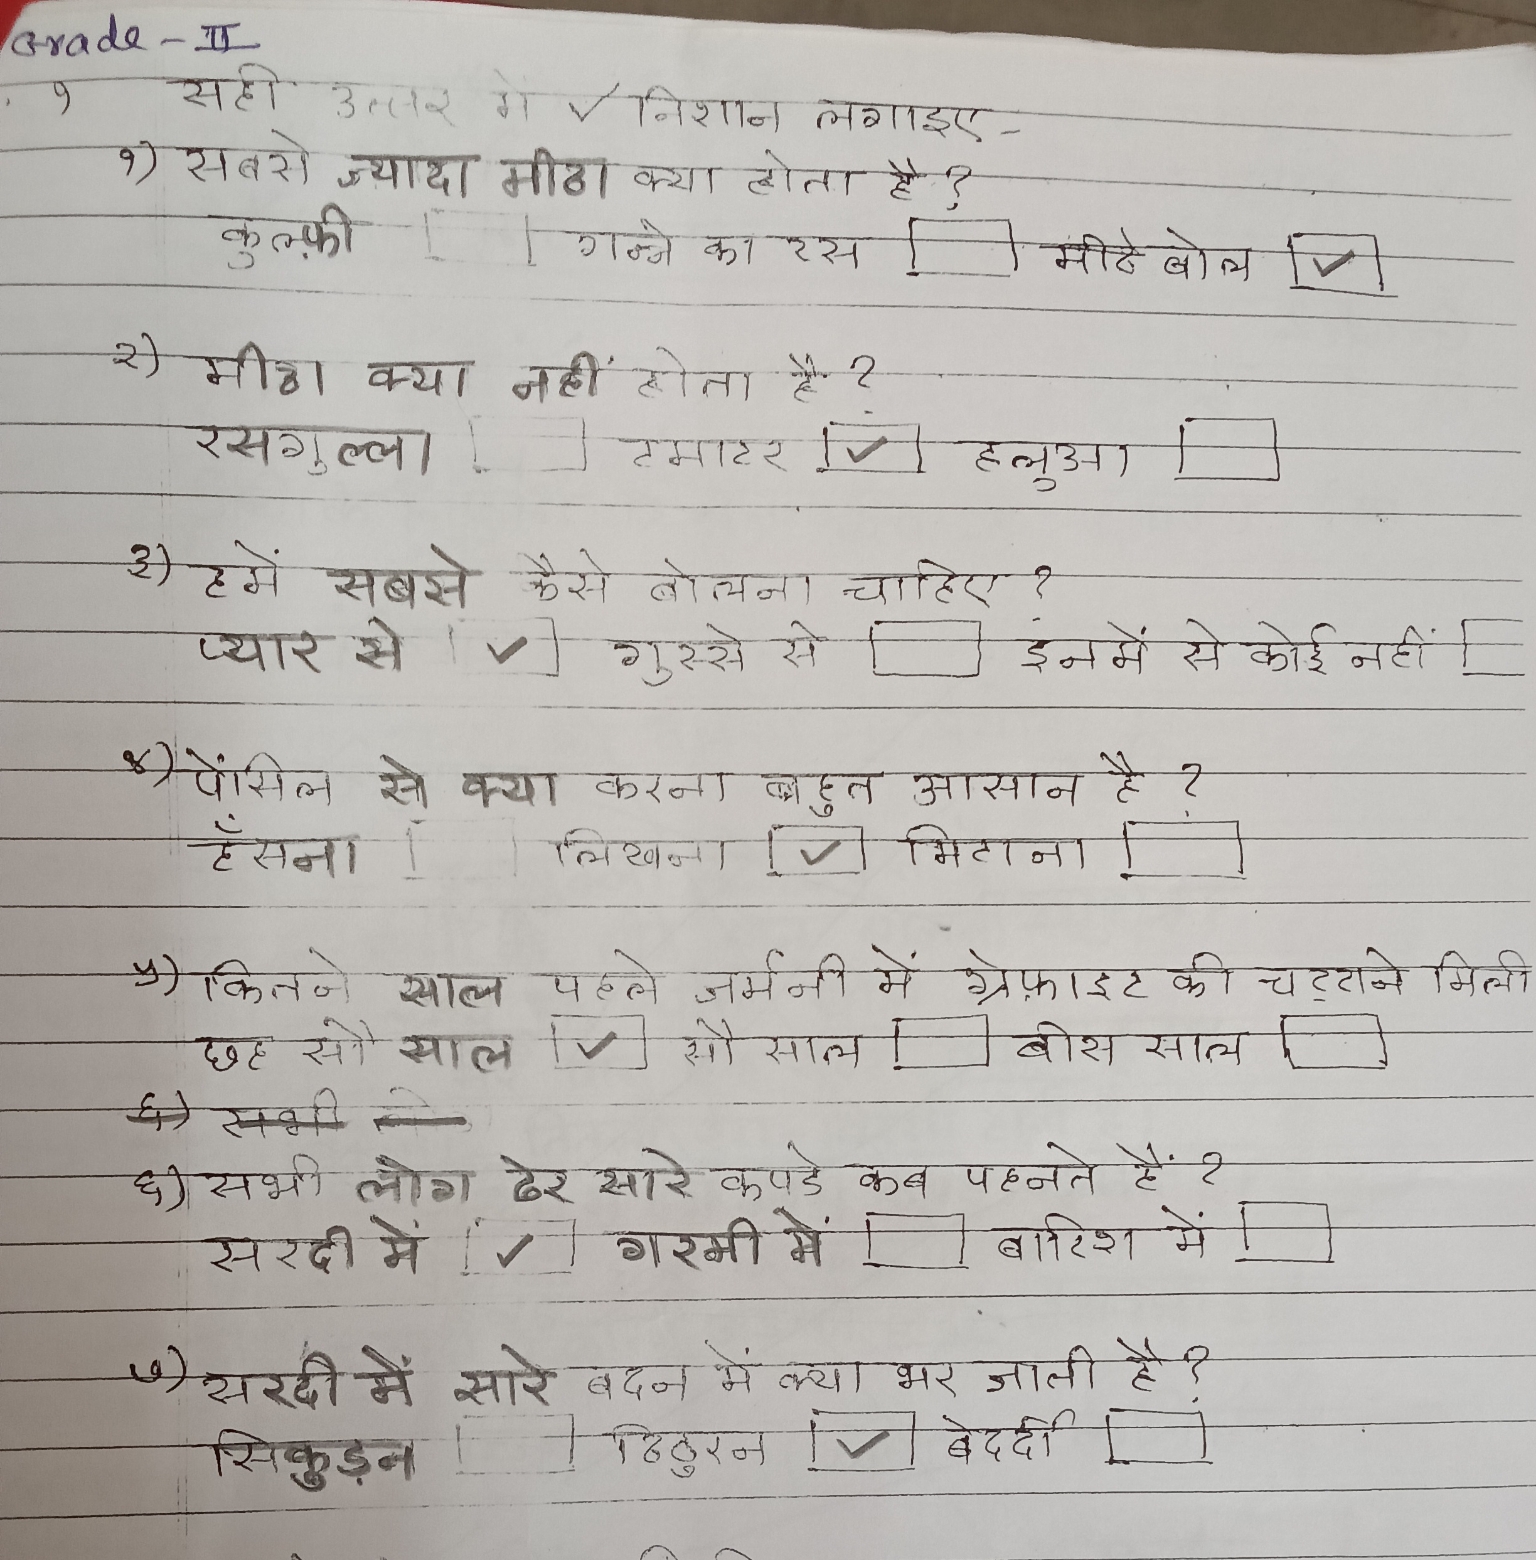 Grade - II
१ सही उत्तर में ✓ निशान लगाइए -
१) सबसे ज्यादा मीठा क्या होता है ?
कुल्फ़ी गन्ने का रस मीठे बोल ✓
२) मीठा क्या नहीं होता है ?
रसगुल्ला टमाटर ✓ हलुआ
३) हमें सबसे कैसे बोलना चाहिए ?
प्यार से ✓ गुस्से से इनमें से कोई नहीं
४) पेंसिल से क्या करना बहुत आसान है ?
हँसना लिखना ✓ मिटाना
५) कितने साल पहले जर्मनी में ग्रेफ़ाइट की चट्टाने मिली
छह सौ साल ✓ सौ साल बीस साल
६) सभी
६) सभी लोग ढेर सारे कपडे कब पहनते हैं ?
सरदी में ✓ गरमी में बारिश में
७) सरदी में सारे बदन में क्या भर जाती है ?
सिकुड़न ठिठुरन ✓ बेदर्दी